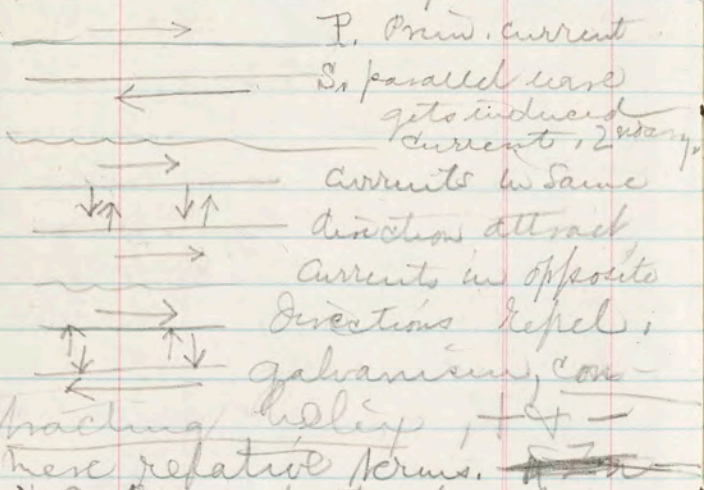 P. Prim. current
S. parallel wire
gets induced
current, 2ndary.
currents in same
direction attract,
currents in opposite
directions repel.
galvanism, con-
tracting helix, + & -
mere relative terms.